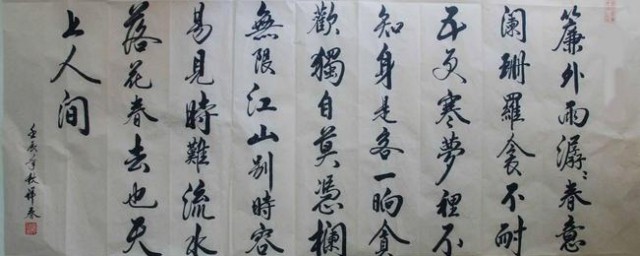 簾外雨潺〻春意
阑珊羅衾不耐
五更寒夢裡不
知身是客一晌貪
歡獨自莫憑欄
無限江山别時容
易見時難流水
落花春去也天
上人间